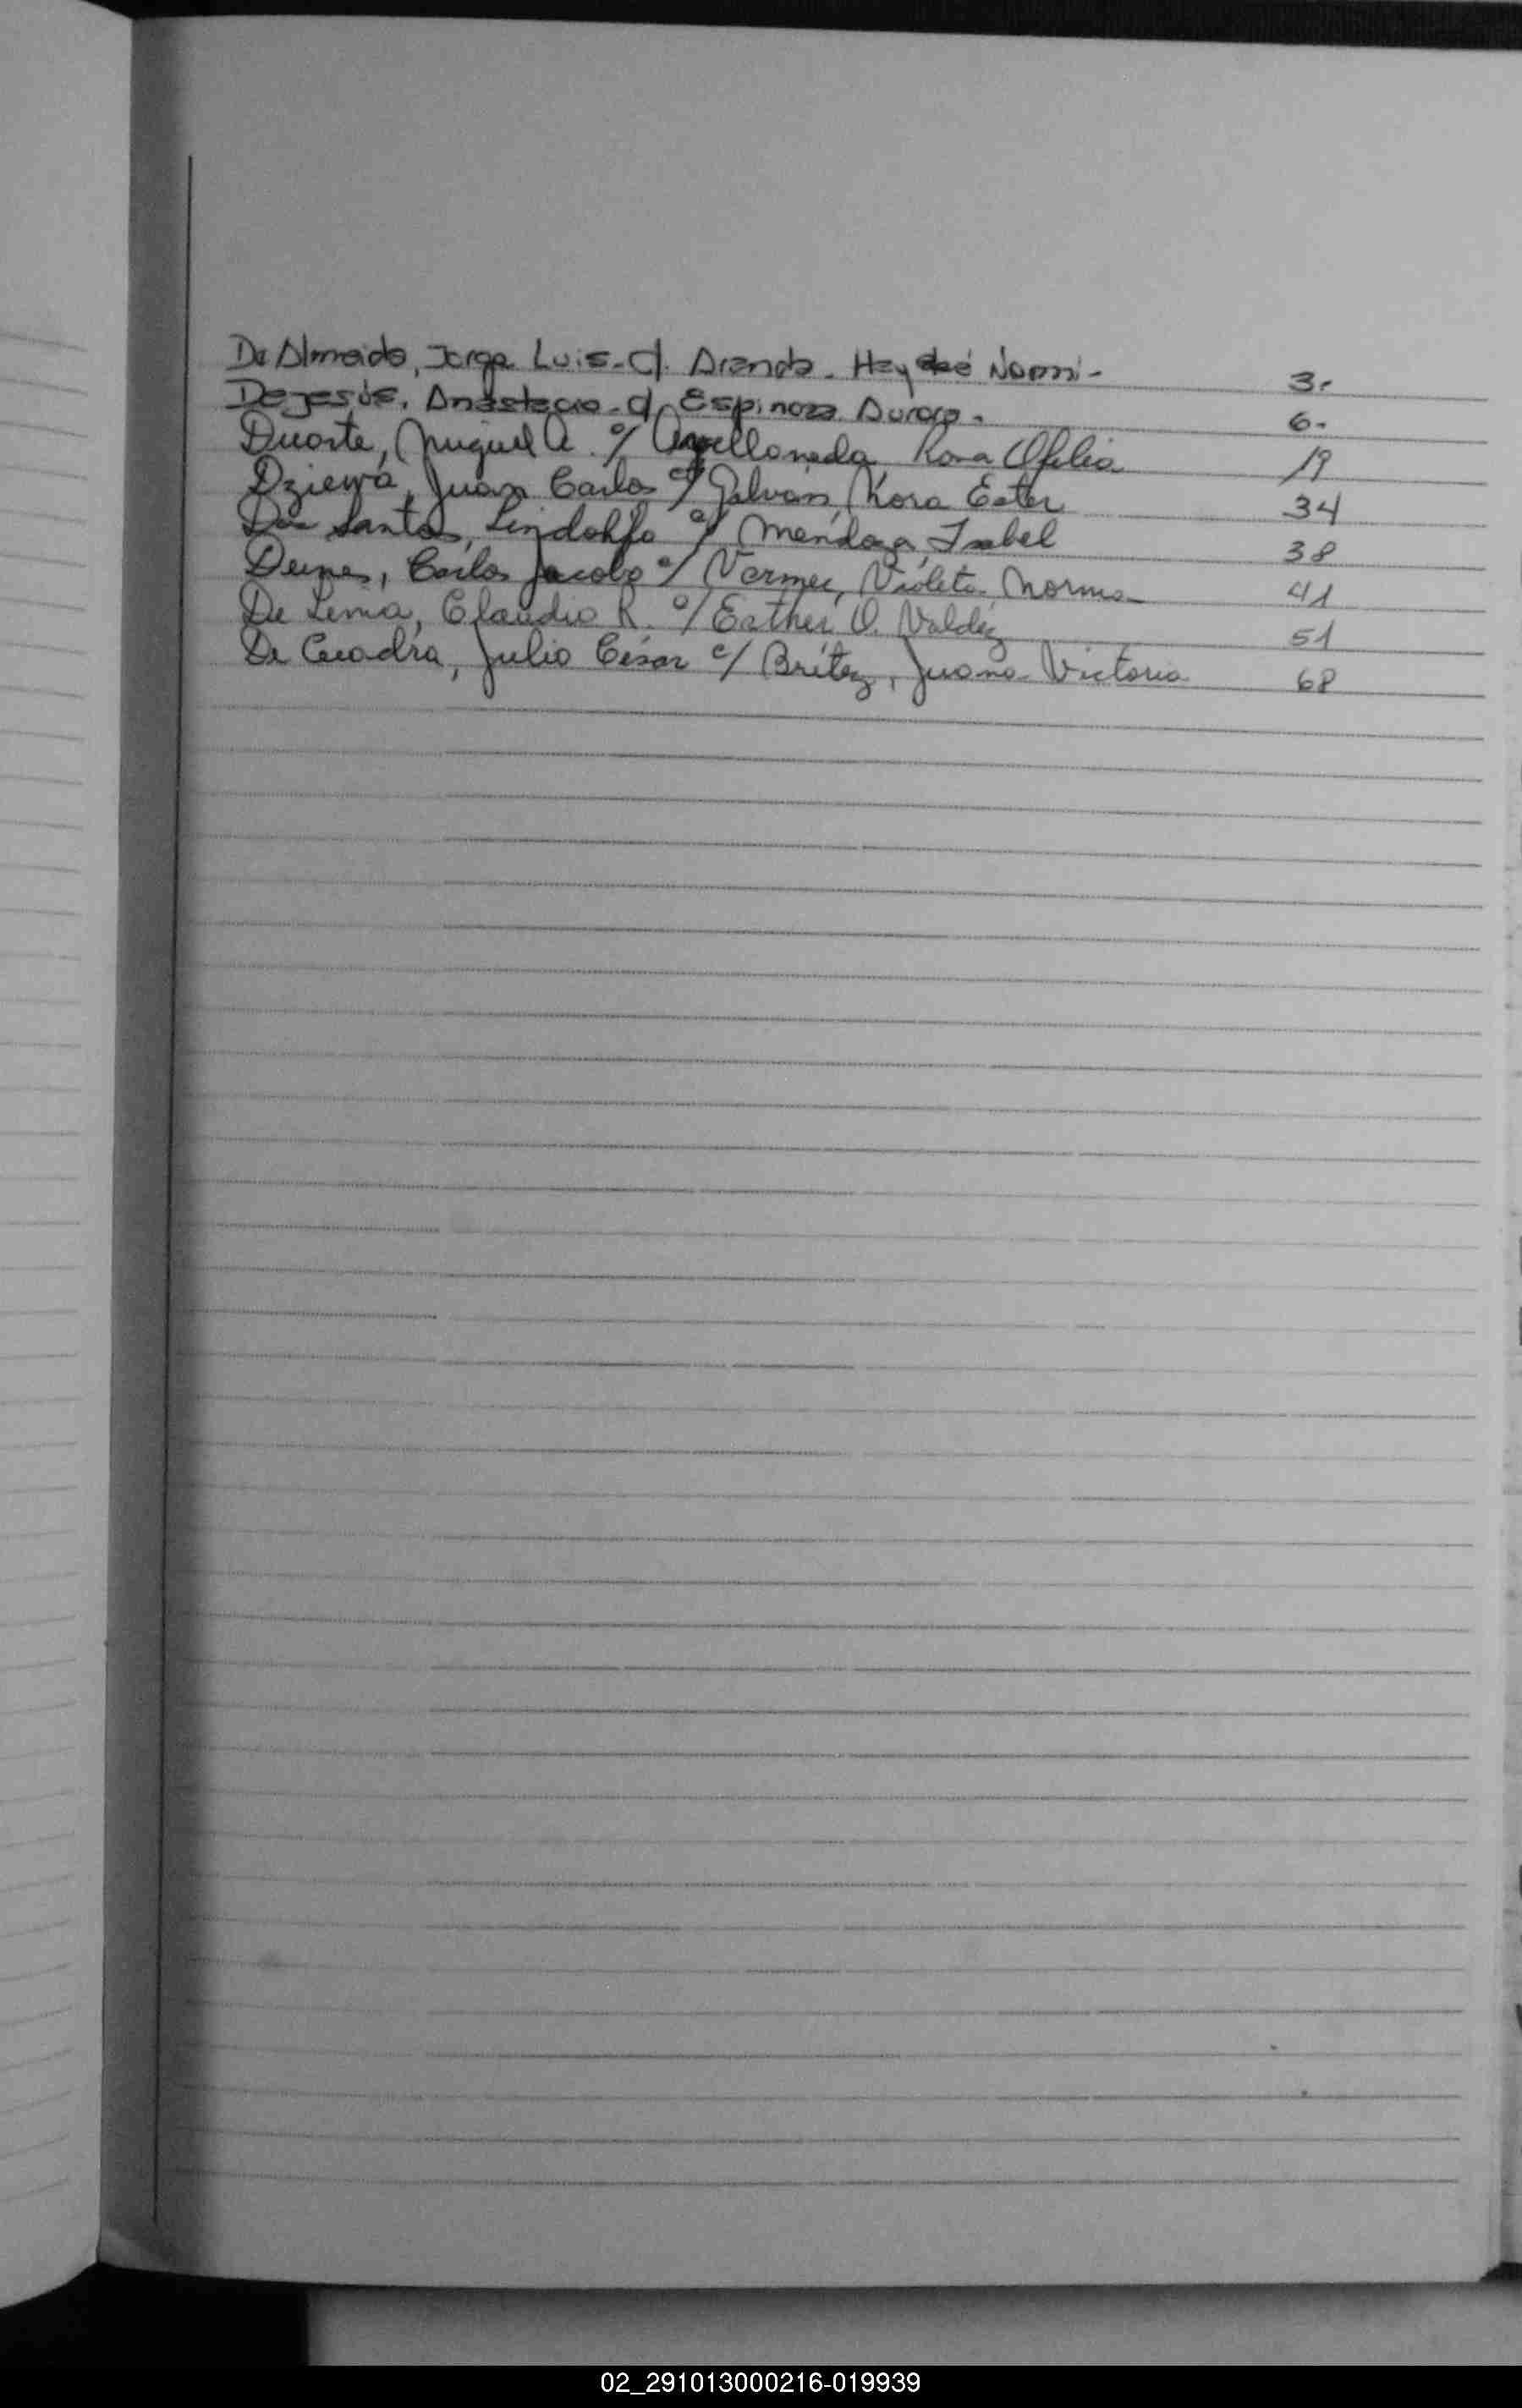 De Almeida, Jorge Luis - c/. Aranda - Haydeé Noemi - 3.-
Dejesús, Anastacio - c/ Espinoza Aurora - 6.-
Duarte, Miguel A. c/ Avellaneda, Rosa Ofelia 19
Dziewa, Juan Carlos c/ Galván, Nora Ester 34
Dos Santos, Lindolfo c/ Mendoza, Isabel 38
Deunes, Carlos Jacobo c/ Vermec, Violeta Norma 41
De Lima, Claudio R. c/ Esther O. Valdéz 51
De Cuadra, Julio César c/ Brítez, Juana Victoria 68
02_291013000216-019939